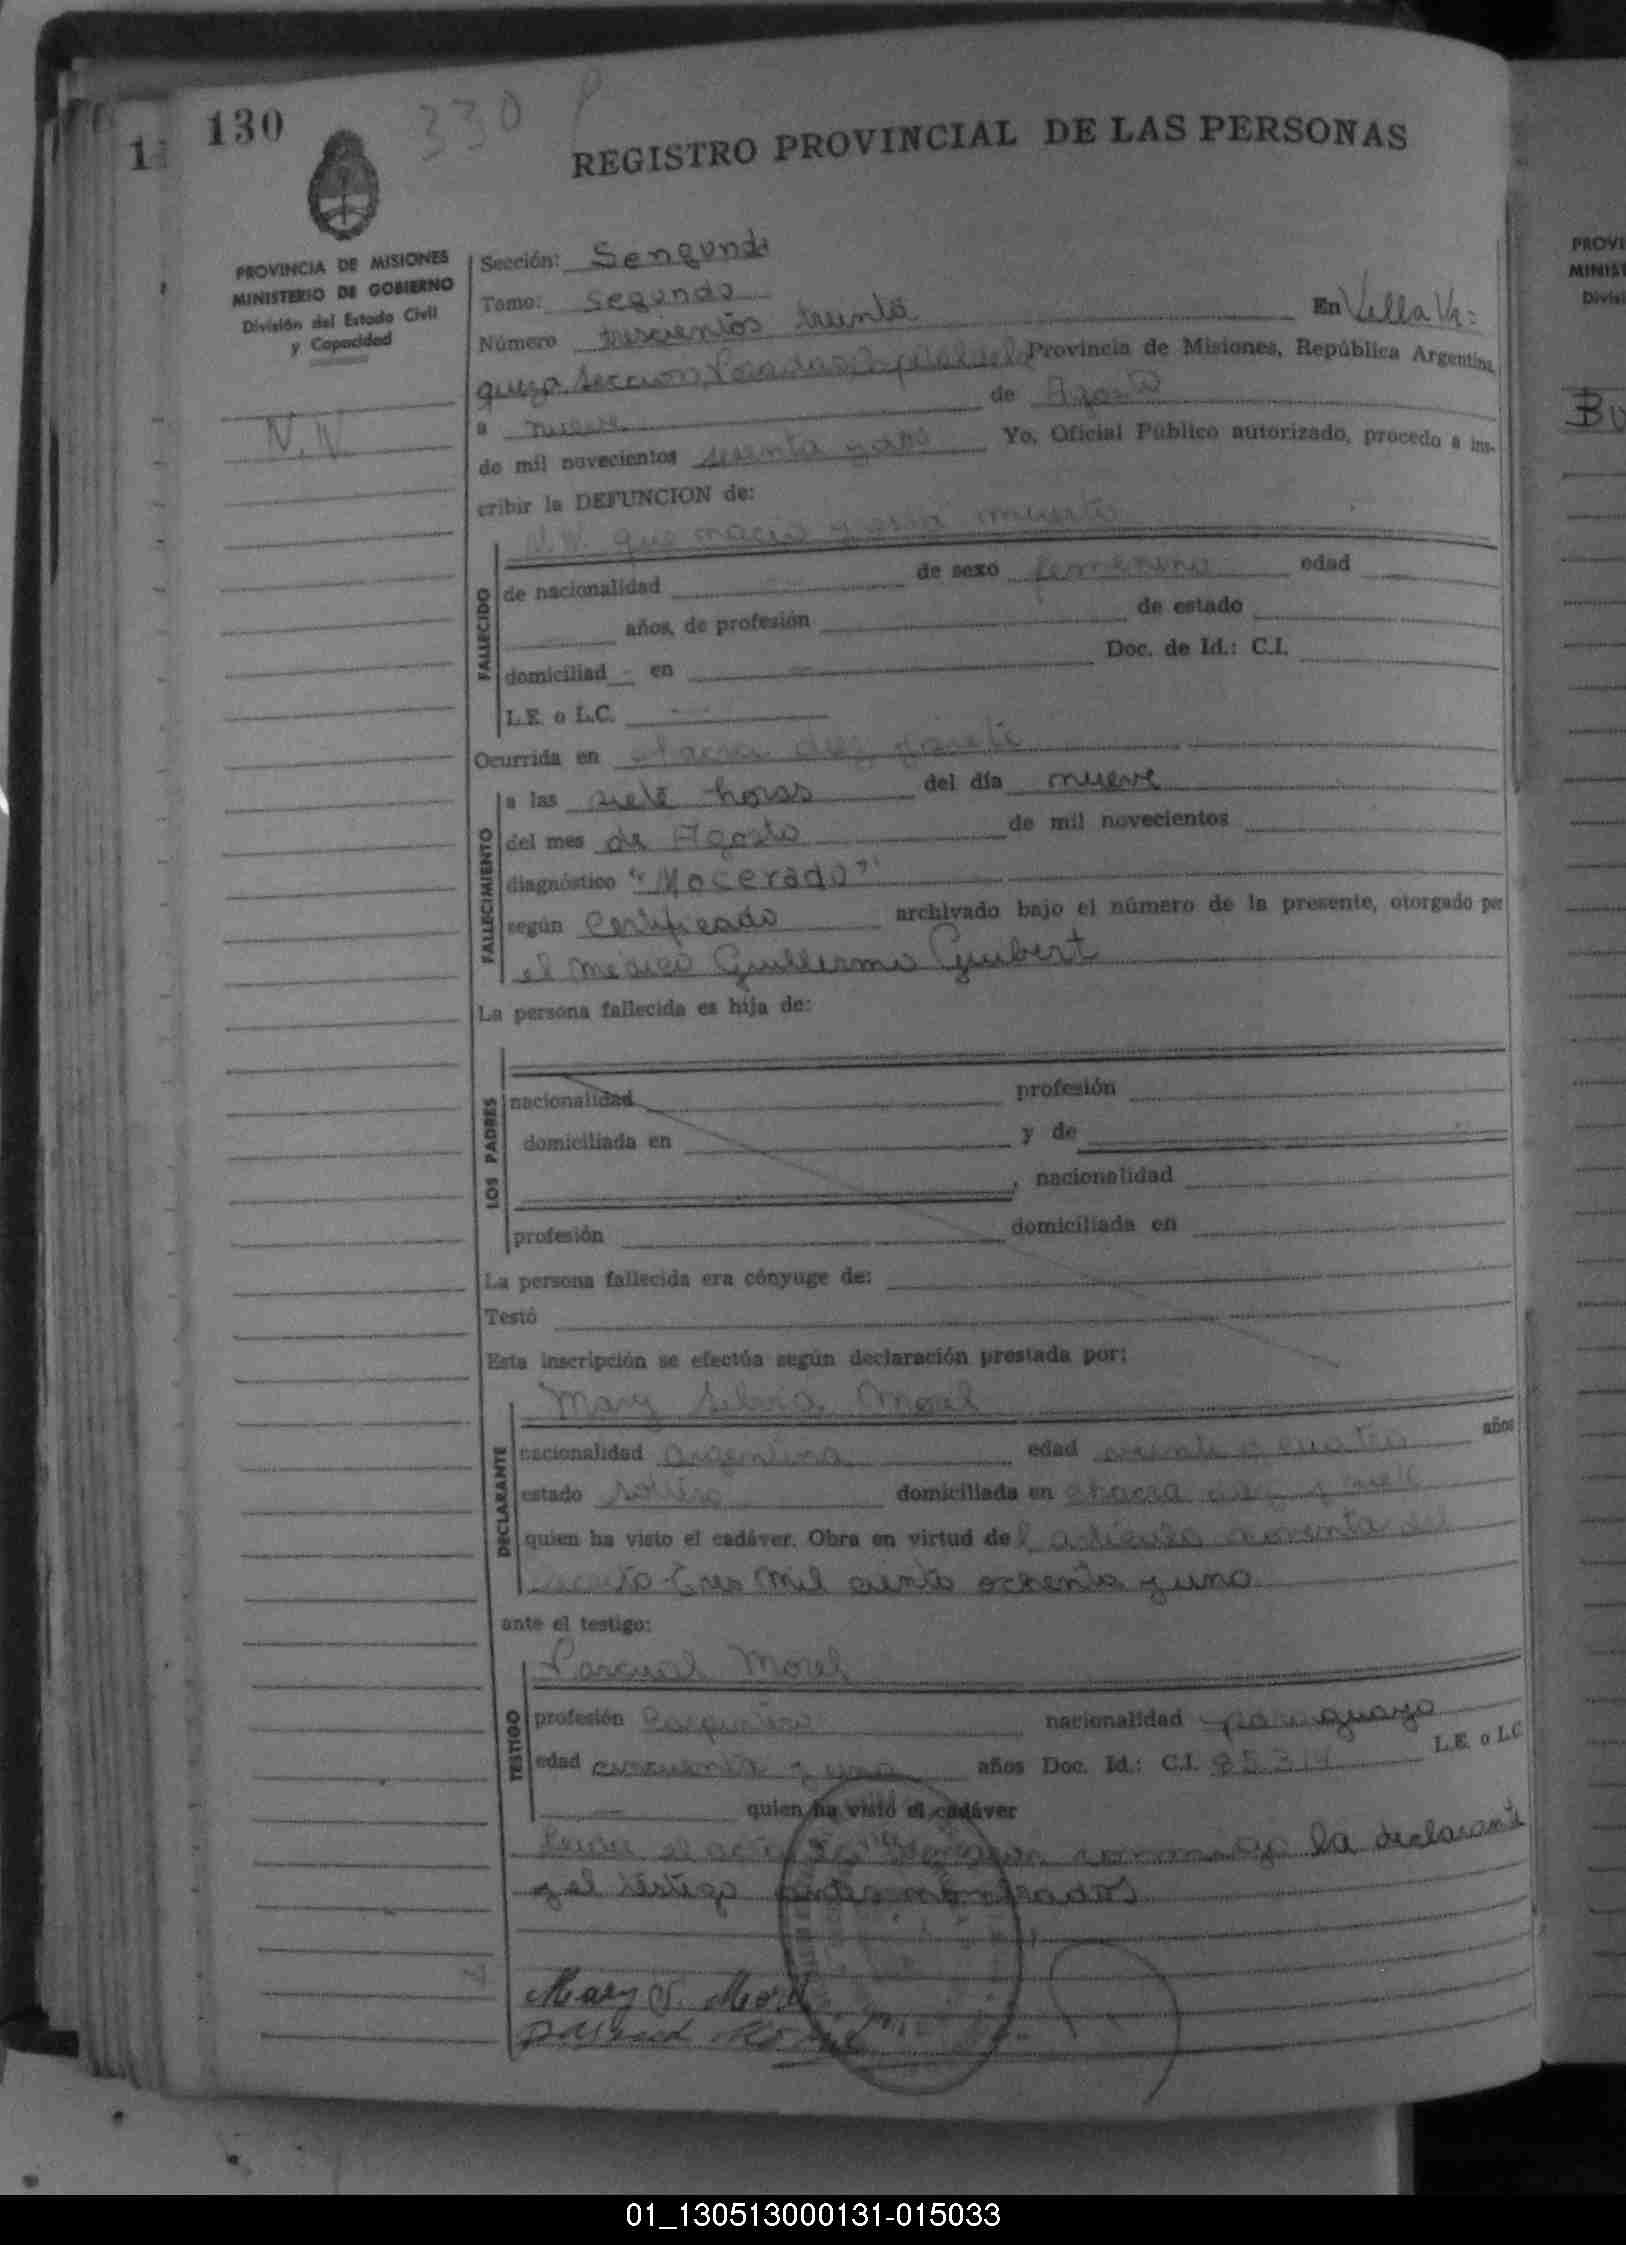 130
330
1
REGISTRO PROVINCIAL DE LAS PERSONAS
PROVINCIA DE MISIONES
MINISTERIO DE GOBIERNO
División del Estado Civil
y Capacidad
N. N.
Sección: Sengunda
Tomo: Segundo
Número trescientos treinta En Villa Ur=
quiza Seccion Posadas Capital de la Provincia de Misiones, República Argentina,
a nueve de Agosto
de mil novecientos sesenta y dos Yo, Oficial Público autorizado, procedo a ins-
cribir la DEFUNCION de:
N.N. que nacio y esta muerta
FALLECIDO
de nacionalidad de sexo femenino edad
años, de profesión de estado
domiciliad en Doc. de Id.: C.I.
L.E. o L.C.
Ocurrida en chacra diez y siete
FALLECIMIENTO
a las siete horas del día nueve
del mes de Agosto de mil novecientos
diagnóstico "Macerado"
según Certificado archivado bajo el número de la presente, otorgado por
el medico Guillermo Guibert
La persona fallecida es hija de:
LOS PADRES
nacionalidad profesión
domiciliada en y de
, nacionalidad
profesión domiciliada en
La persona fallecida era cónyuge de:
Testó
Esta inscripción se efectúa según declaración prestada por:
DECLARANTE
Mary Silvia Morel
nacionalidad argentina edad veinte y cuatro años
estado soltera domiciliada en chacra diez y siete
quien ha visto el cadáver. Obra en virtud del articulo noventa del
Decreto tres mil ciento ochenta y uno
ante el testigo:
TESTIGO
Pascual Morel
profesión Carpintero nacionalidad paraguayo
edad cincuenta y uno años Doc. Id.: C.I. 85314 L.E. o L.C
quien ha visto el cadáver
Leida el acta la firman conmigo la declarante
y el testigo antes nombrados
Mary S. Morel
Pascual Morel
PROVI
MINIST
Divisi
BU
01_130513000131-015033